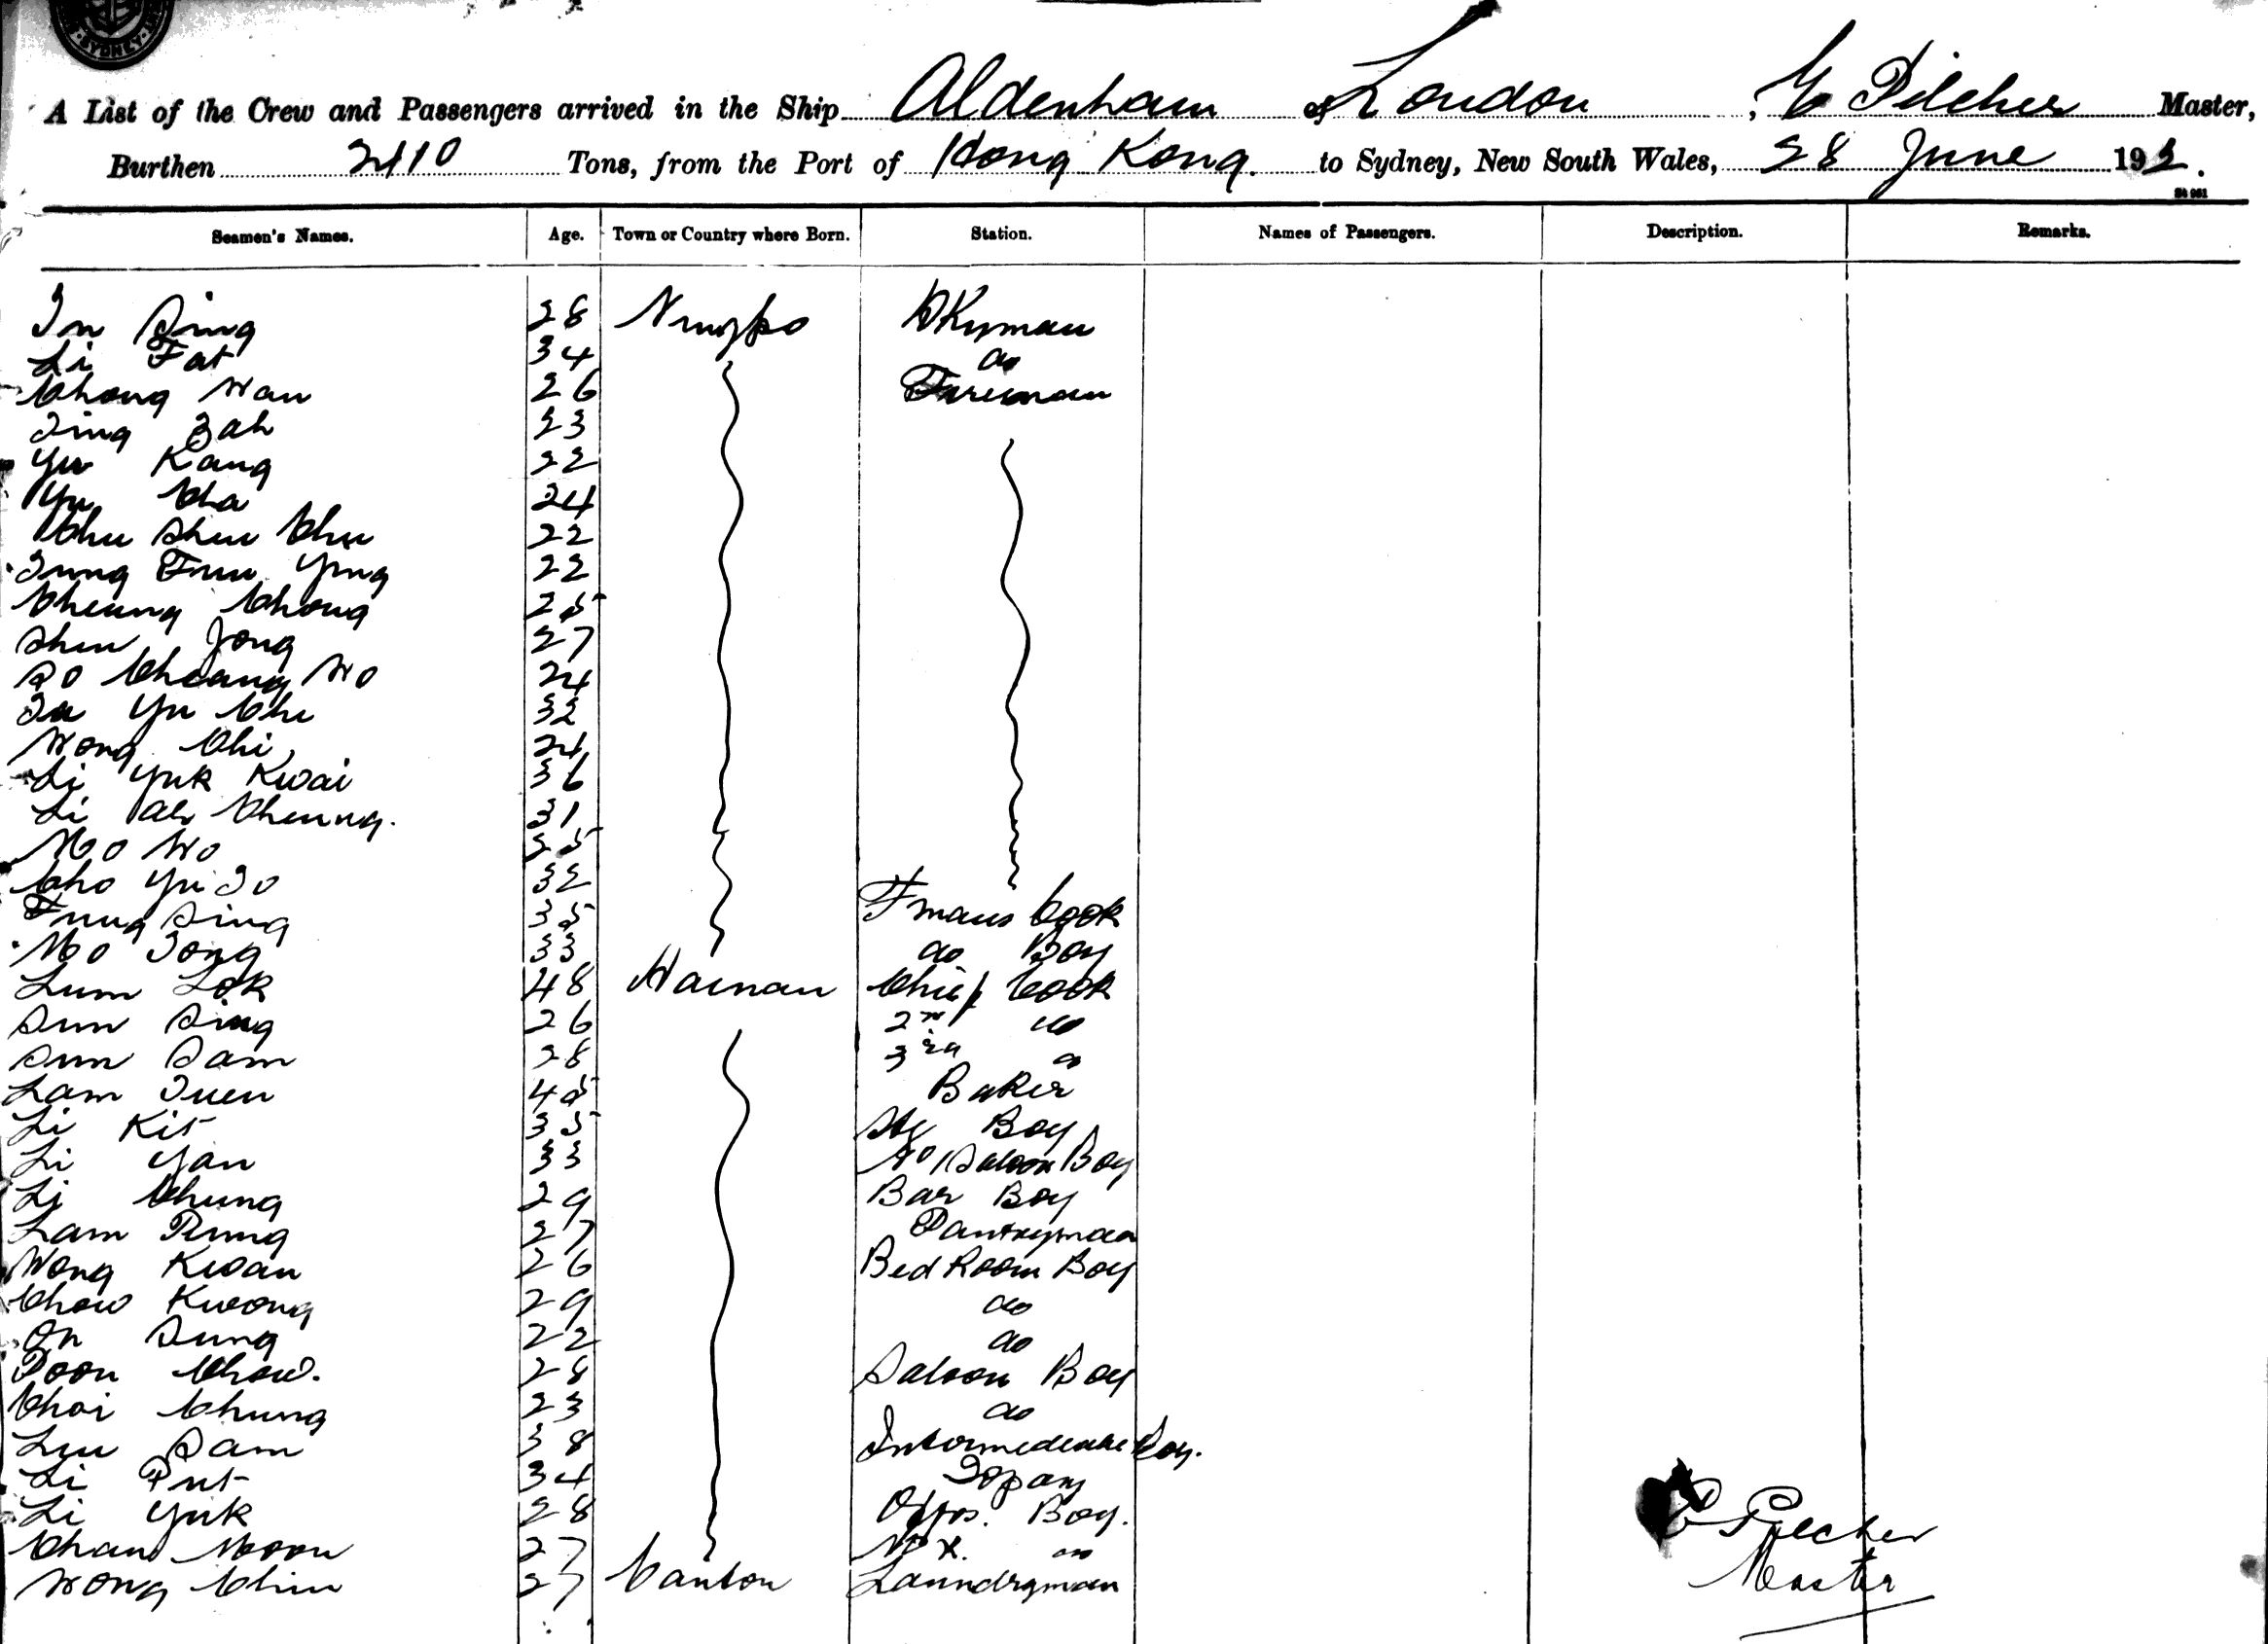 SYDNEY
A List of the Crew and Passengers arrived in the Ship Aldenham of London, E Pilcher Master,
Burthen 2110 Tons, from the Port of Hong Kong. to Sydney, New South Wales, 28 June 192.
Seamen's Names. Age. Town or Country where Born. Station. Names of Passengers. Description. Remarks.
Sing 28 Ningpo DKyman
Li Fat 34 do
Chong Wan 26 Fireman
Ting Zah 23
Yu Kang 22
Yu Cha 24
Chu Shu Chu 22
Tung Fuu Yung 22
Cheung Chong 25
Shu Jong 27
So Cheang Wo 24
Yu Chi 32
Wong Chi 24
Li Yuk Kwai 36
Li Ah Cheung. 31
Mo Wo
Cho Yu To 32
Fung Sing 35 Fmans Cook
Mo Tong 33 do Boy
Lum Lok 48 Hainan Chief Cook
Sun Sing 26 2nd do
Sun Sam 28 3rd do
Lam Tuen 45 Baker
Li Kit 35 Stg Boy
Li Yan 33 No 1 Saloon Boy
Li Chung 29 Bar Boy
Lam Pung 27 Pantryman
Wong Kwan 26 Bed Room Boy
Chow Kwong 29 do
On Sung 22 do
Poon Chow. 28 Saloon Boy
Choi Chung 23 do
Luu Sam 38 Intermediate Boy.
Li Put 34 Topan
Li Yuk 28 Offrs. Boy.
Chan Moon 27 do
Wong Chiu 27 Canton Laundryman
E Pilcher
Master